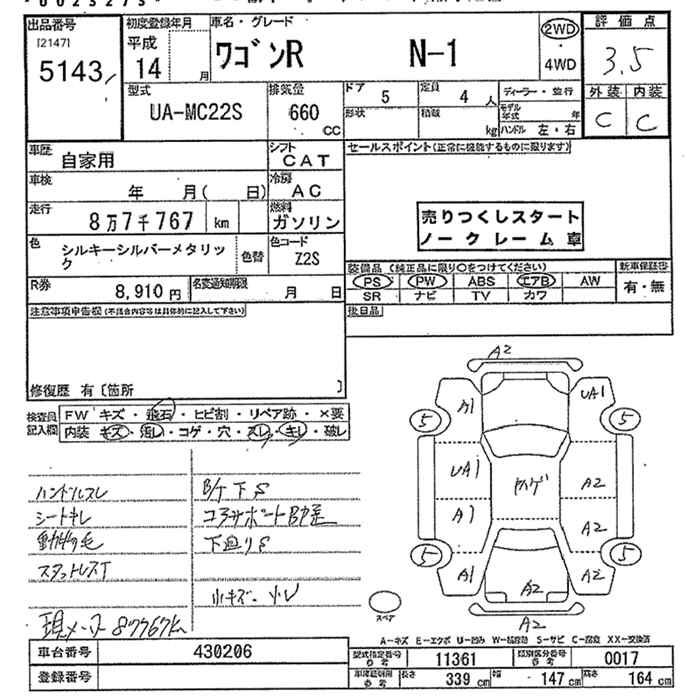 出品番号
[2147]
5143
初度登録年月
平成
14 月
車名・グレード
ワゴンR N-1
2WD
4WD
評価点
3.5
外装 内装
C C
型式
UA-MC22S
排気量
660
CC
ドア 5
定員 4 人
形状
積載 kg
ディーラー・並行
モデル年式 年
ハンドル 左・右
車歴 自家用
シフト CAT
車検 年 月( 日)
冷房 AC
走行 8万7千767 km
燃料 ガソリン
色 シルキーシルバーメタリック
色替
色コード Z2S
R券 8,910円
名変通知期限 月 日
セールスポイント(正常に機能するものに限ります)
売りつくしスタート
ノークレーム車
装備品(純正品に限り○をつけてください)
PS PW ABS エアB AW
SR ナビ TV カワ
新車保証書
有・無
後日品
注意事項申告欄(不具合内容等は具体的に記入して下さい)
修復歴 有〔箇所 〕
検査員記入欄
FW キズ・飛石・ヒビ割・リペア跡・×要
内装 キズ・汚レ・コゲ・穴・スレ・キレ・破レ
ハンドルスレ
シートキレ
動物毛
スタッドレスT
現メーター 87767km
B/T下S
コアサポートB
下廻りS
小キズ・小U
A2
A1
UA1
5
5
UA1
ハゲ
A2
A1
A2
5
5
A1
A2
A2
スペア
A2
A-キズ E-エクボ U-凹み W-補修跡 S-サビ C-腐食 XX-交換済
車台番号 430206
登録番号
型式指定番号 参考 11361
類別区分番号 参考 0017
車検証記載 参考
長さ 339 cm
幅 147 cm
高さ 164 cm